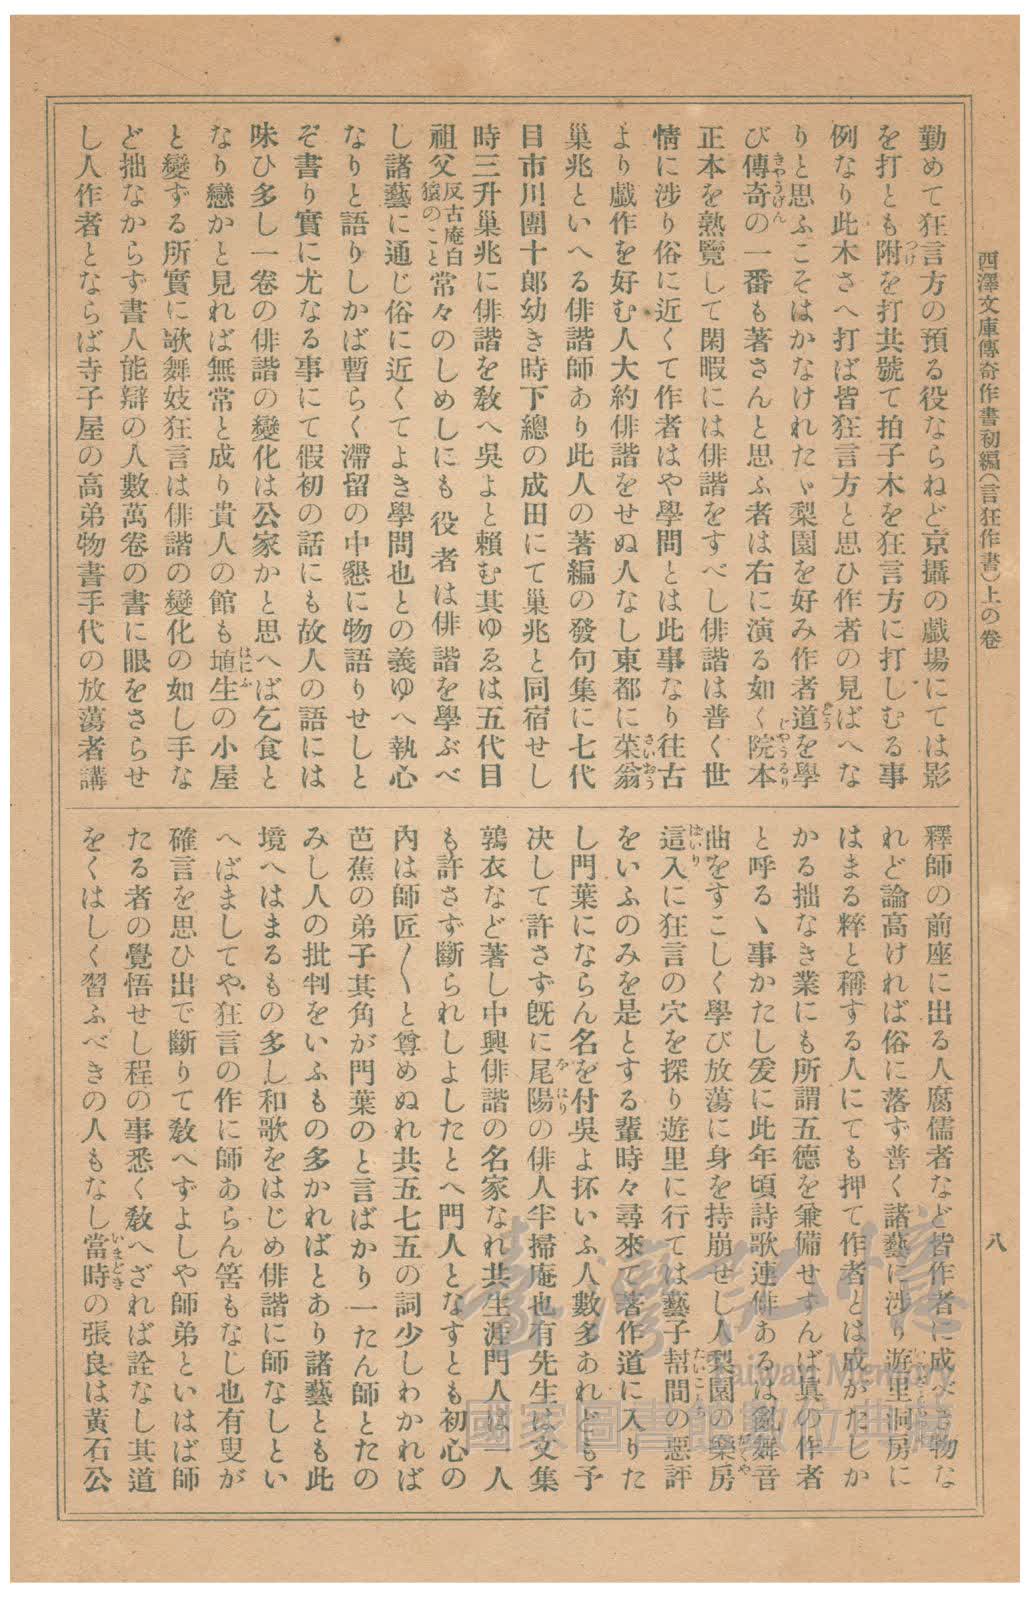 西澤文庫傳奇作書初編(言狂作書)上の卷
八
勤めて狂言方の預る役ならねど京攝の戯場にては影
を打とも附を打共號て拍子木を狂言方に打しむる事
例なり此木さへ打ば皆狂言方と思ひ作者の見ばへな
りと思ふこそはかなけれたゞ梨園を好み作者道を學
び傳奇の一番も著さんと思ふ者は右に演る如く院本
正本を熟覽して閑暇には俳諧をすべし俳諧は普く世
情に涉り俗に近くて作者はや學問とは此事なり往古
より戯作を好む人大約俳諧をせぬ人なし東都に菜翁
巢兆といへる俳諧師あり此人の著編の發句集に七代
目市川團十郎幼き時下總の成田にて巢兆と同宿せし
時三升巢兆に俳諧を敎へ吳よと賴む其ゆゑは五代目
祖父反古庵白猿のこと常々のしめしにも役者は俳諧を學ぶべ
し諸藝に通じ俗に近くてよき學問也との義ゆへ執心
なりと語りしかば暫らく滯留の中懇に物語りせしと
ぞ書り實に尤なる事にて假初の話にも故人の語には
味ひ多し一卷の俳諧の變化は公家かと思へば乞食と
なり戀かと見れば無常と成り貴人の館も埴生の小屋
と變ずる所實に歌舞妓狂言は俳諧の變化の如し手な
ど拙なからず書人能辯の人數萬卷の書に眼をさらせ
し人作者とならば寺子屋の高弟物書手代の放蕩者講
釋師の前座に出る人腐儒者など皆作者に成べき物な
れど論高ければ俗に落ず普く諸藝に涉り遊里洞房に
はまる粹と稱する人にても押て作者とは成がたしか
かる拙なき業にも所謂五德を兼備せずんば眞の作者
と呼るゝ事かたし爰に此年頃詩歌連俳あるは亂舞音
曲をすこしく學び放蕩に身を持崩せし人梨園の樂房
這入に狂言の穴を探り遊里に行ては藝子幇間の惡評
をいふのみを是とする輩時々尋來て著作道に入りた
し門葉にならん名を付吳よ抔いふ人數多あれども予
決して許さず既に尾陽の俳人半掃庵也有先生は文集
鶉衣など著し中興俳諧の名家なれ共生涯門人は一人
も許さず斷られしよしたとへ門人となすとも初心の
內は師匠〳〵と尊めぬれ共五七五の詞少しわかれば
芭蕉の弟子其角が門葉のと言ばかり一たん師とたの
みし人の批判をいふもの多かればとあり諸藝とも此
境へはまるもの多し和歌をはじめ俳諧に師なしとい
へばましてや狂言の作に師あらん筈もなし也有叟が
確言を思ひ出で斷りて敎へずよしや師弟といはば師
たる者の覺悟せし程の事悉く敎へざれば詮なし其道
をくはしく習ふべきの人もなし當時の張良は黃石公
つけ
きやうげん
だう
じやうるり
さいおう
はにふ
がくや
はいり
たいこ
をはり
いまどき
臺灣記憶
Taiwan Memory
國家圖書館數位典藏